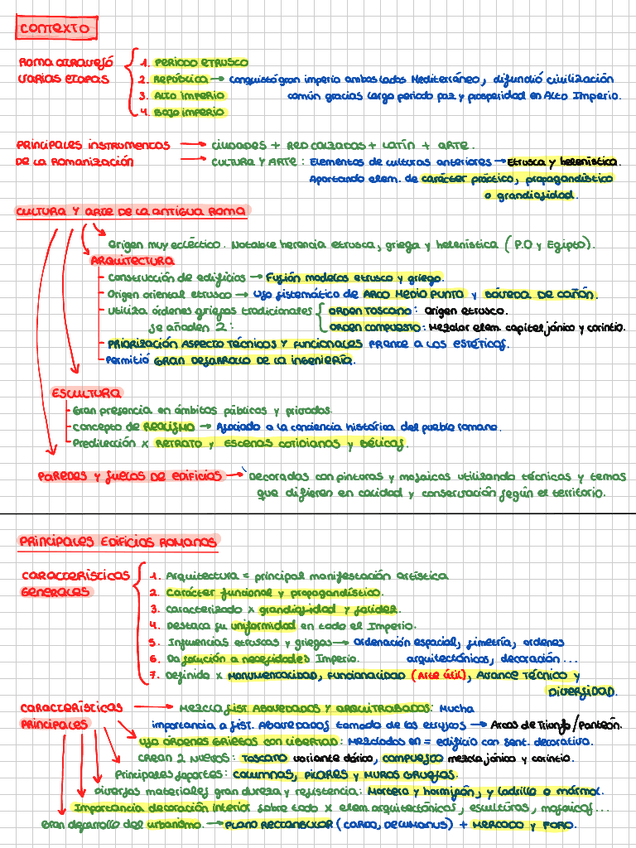 CONTEXTO
ROMA ATRAVESÓ
VARIAS ETAPAS
1. PERIODO ETRUSCO
2. REPÚBLICA → conquistó gran imperio ambos lados Mediterráneo, difundió civilización
3. ALTO IMPERIO común gracias largo periodo paz y prosperidad en Alto Imperio.
4. BAJO IMPERIO
PRINCIPALES INSTRUMENTOS → CIUDADES + RED CALZADAS + LATÍN + ARTE.
DE LA ROMANIZACIÓN → CULTURA Y ARTE: Elementos de culturas anteriores → Etrusca y helenística.
Aportando elem. de carácter práctico, propagandístico
o grandiosidad.
CULTURA Y ARTE DE LA ANTIGUA ROMA
Origen muy ecléctico. Notable herencia etrusca, griega y helenística (P.O y Egipto).
ARQUITECTURA
Construcción de edificios → Fusión modelos etrusco y griego.
Origen oriental etrusco → Uso sistemático de ARCO MEDIO PUNTO y BÓVEDA DE CAÑÓN.
Utiliza órdenes griegos tradicionales ORDEN TOSCANO: Origen etrusco.
Se añaden 2: ORDEN COMPUESTO: Mezclar elem. capitel jónico y corintio.
PRIORIZACIÓN ASPECTO TÉCNICOS Y FUNCIONALES FRENTE A LOS ESTÉTICOS.
Permitió GRAN DESARROLLO DE LA INGENIERÍA.
ESCULTURA
Gran presencia en ámbitos públicos y privados.
Concepto de REALISMO → Asociado a la conciencia histórica del pueblo romano.
Predilección x RETRATO y ESCENAS COTIDIANAS Y BÉLICAS.
PAREDES Y SUELOS DE EDIFICIOS → Decoradas con pinturas y mosaicos utilizando técnicas y temas
que difieren en calidad y conservación según el territorio.
PRINCIPALES EDIFICIOS ROMANOS
CARACTERÍSTICAS
GENERALES
1. Arquitectura = principal manifestación artística
2. Carácter funcional y propagandístico.
3. Caracterizado x grandiosidad y solidez.
4. Destaca su uniformidad en todo el Imperio.
5. Influencias etruscas y griegas → Ordenación espacial, simetría, ordenes
6. Da solución a necesidades Imperio. arquitectónicos, decoración ...
7. Definido x MONUMENTALIDAD, FUNCIONALIDAD (Arte útil), AVANCE TÉCNICO y
DIVERSIDAD.
CARACTERÍSTICAS → MEZCLA SIST ABOVEDADOS Y ARQUITRABADOS: Mucha
PRINCIPALES importancia a SIST. ABOVEDADOS tomada de los etruscos → Arcos de Triunfo/Panteón.
USO ÓRDENES GRIEGOS CON LIBERTAD: Mezclados en = edificio con sent. decorativo.
CREAN 2 NUEVOS: TOSCANO variante dórico, COMPUESTO mezcla jónico y corintio.
Principales soportes: COLUMNAS, PILARES Y MUROS GRUESOS.
Diversos materiales gran dureza y resistencia: Mortero y hormigón, y ladrillo o mármol.
Importancia decoración interior sobre todo x elem arquitectónicos, esculturas, mosaicos...
Gran desarrollo del urbanismo. → PLANO RECTANGULAR (CARDO, DECUMANUS) + MERCADO y FORO.